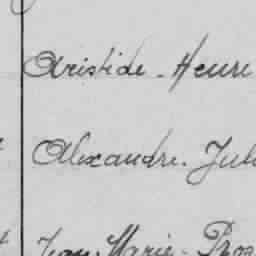 Aristide - Henri
Alexandre. Jul
Jean. Marie - Pros